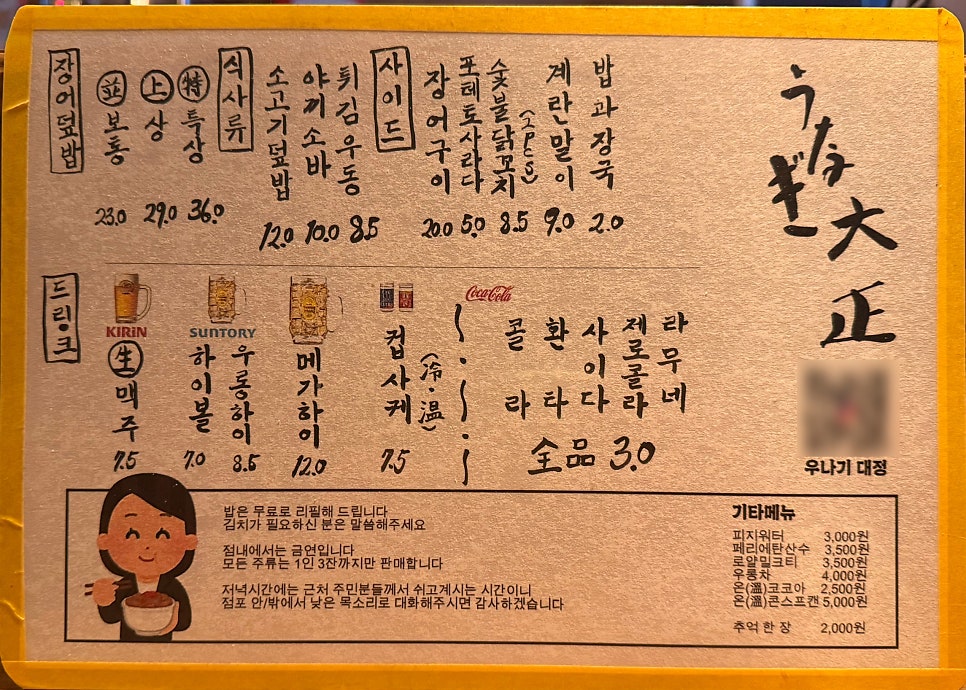 うなぎ
大正
우나기 대정
장어덮밥
㊤ 보통 23.0
上 상 29.0
特 특상 36.0
식사류
소고기덮밥 12.0
야끼소바 10.0
튀김우동 8.5
사이드
장어구이 20.0
포테토사라다 5.0
숯불닭꼬치 (1PCS) 8.5
계란말이 9.0
밥과장국 2.0
드링크
KIRIN
生 맥주 7.5
SUNTORY
하이볼 7.0
우롱하이 8.5
메가하이 12.0
컵사케 (冷·温) 7.5
Coca-Cola
콜라
환타
사이다
제로콜라
라무네
全品 3.0
밥은 무료로 리필해 드립니다
김치가 필요하신 분은 말씀해주세요
점내에서는 금연입니다
모든 주류는 1인 3잔까지만 판매합니다
저녁시간에는 근처 주민분들께서 쉬고계시는 시간이니
점포 안/밖에서 낮은 목소리로 대화해주시면 감사하겠습니다
기타메뉴
피지워터 3,000원
페리에탄산수 3,500원
로얄밀크티 3,500원
우롱차 4,000원
온(溫)코코아 2,500원
온(溫)콘스프캔 5,000원
추억 한 장 2,000원